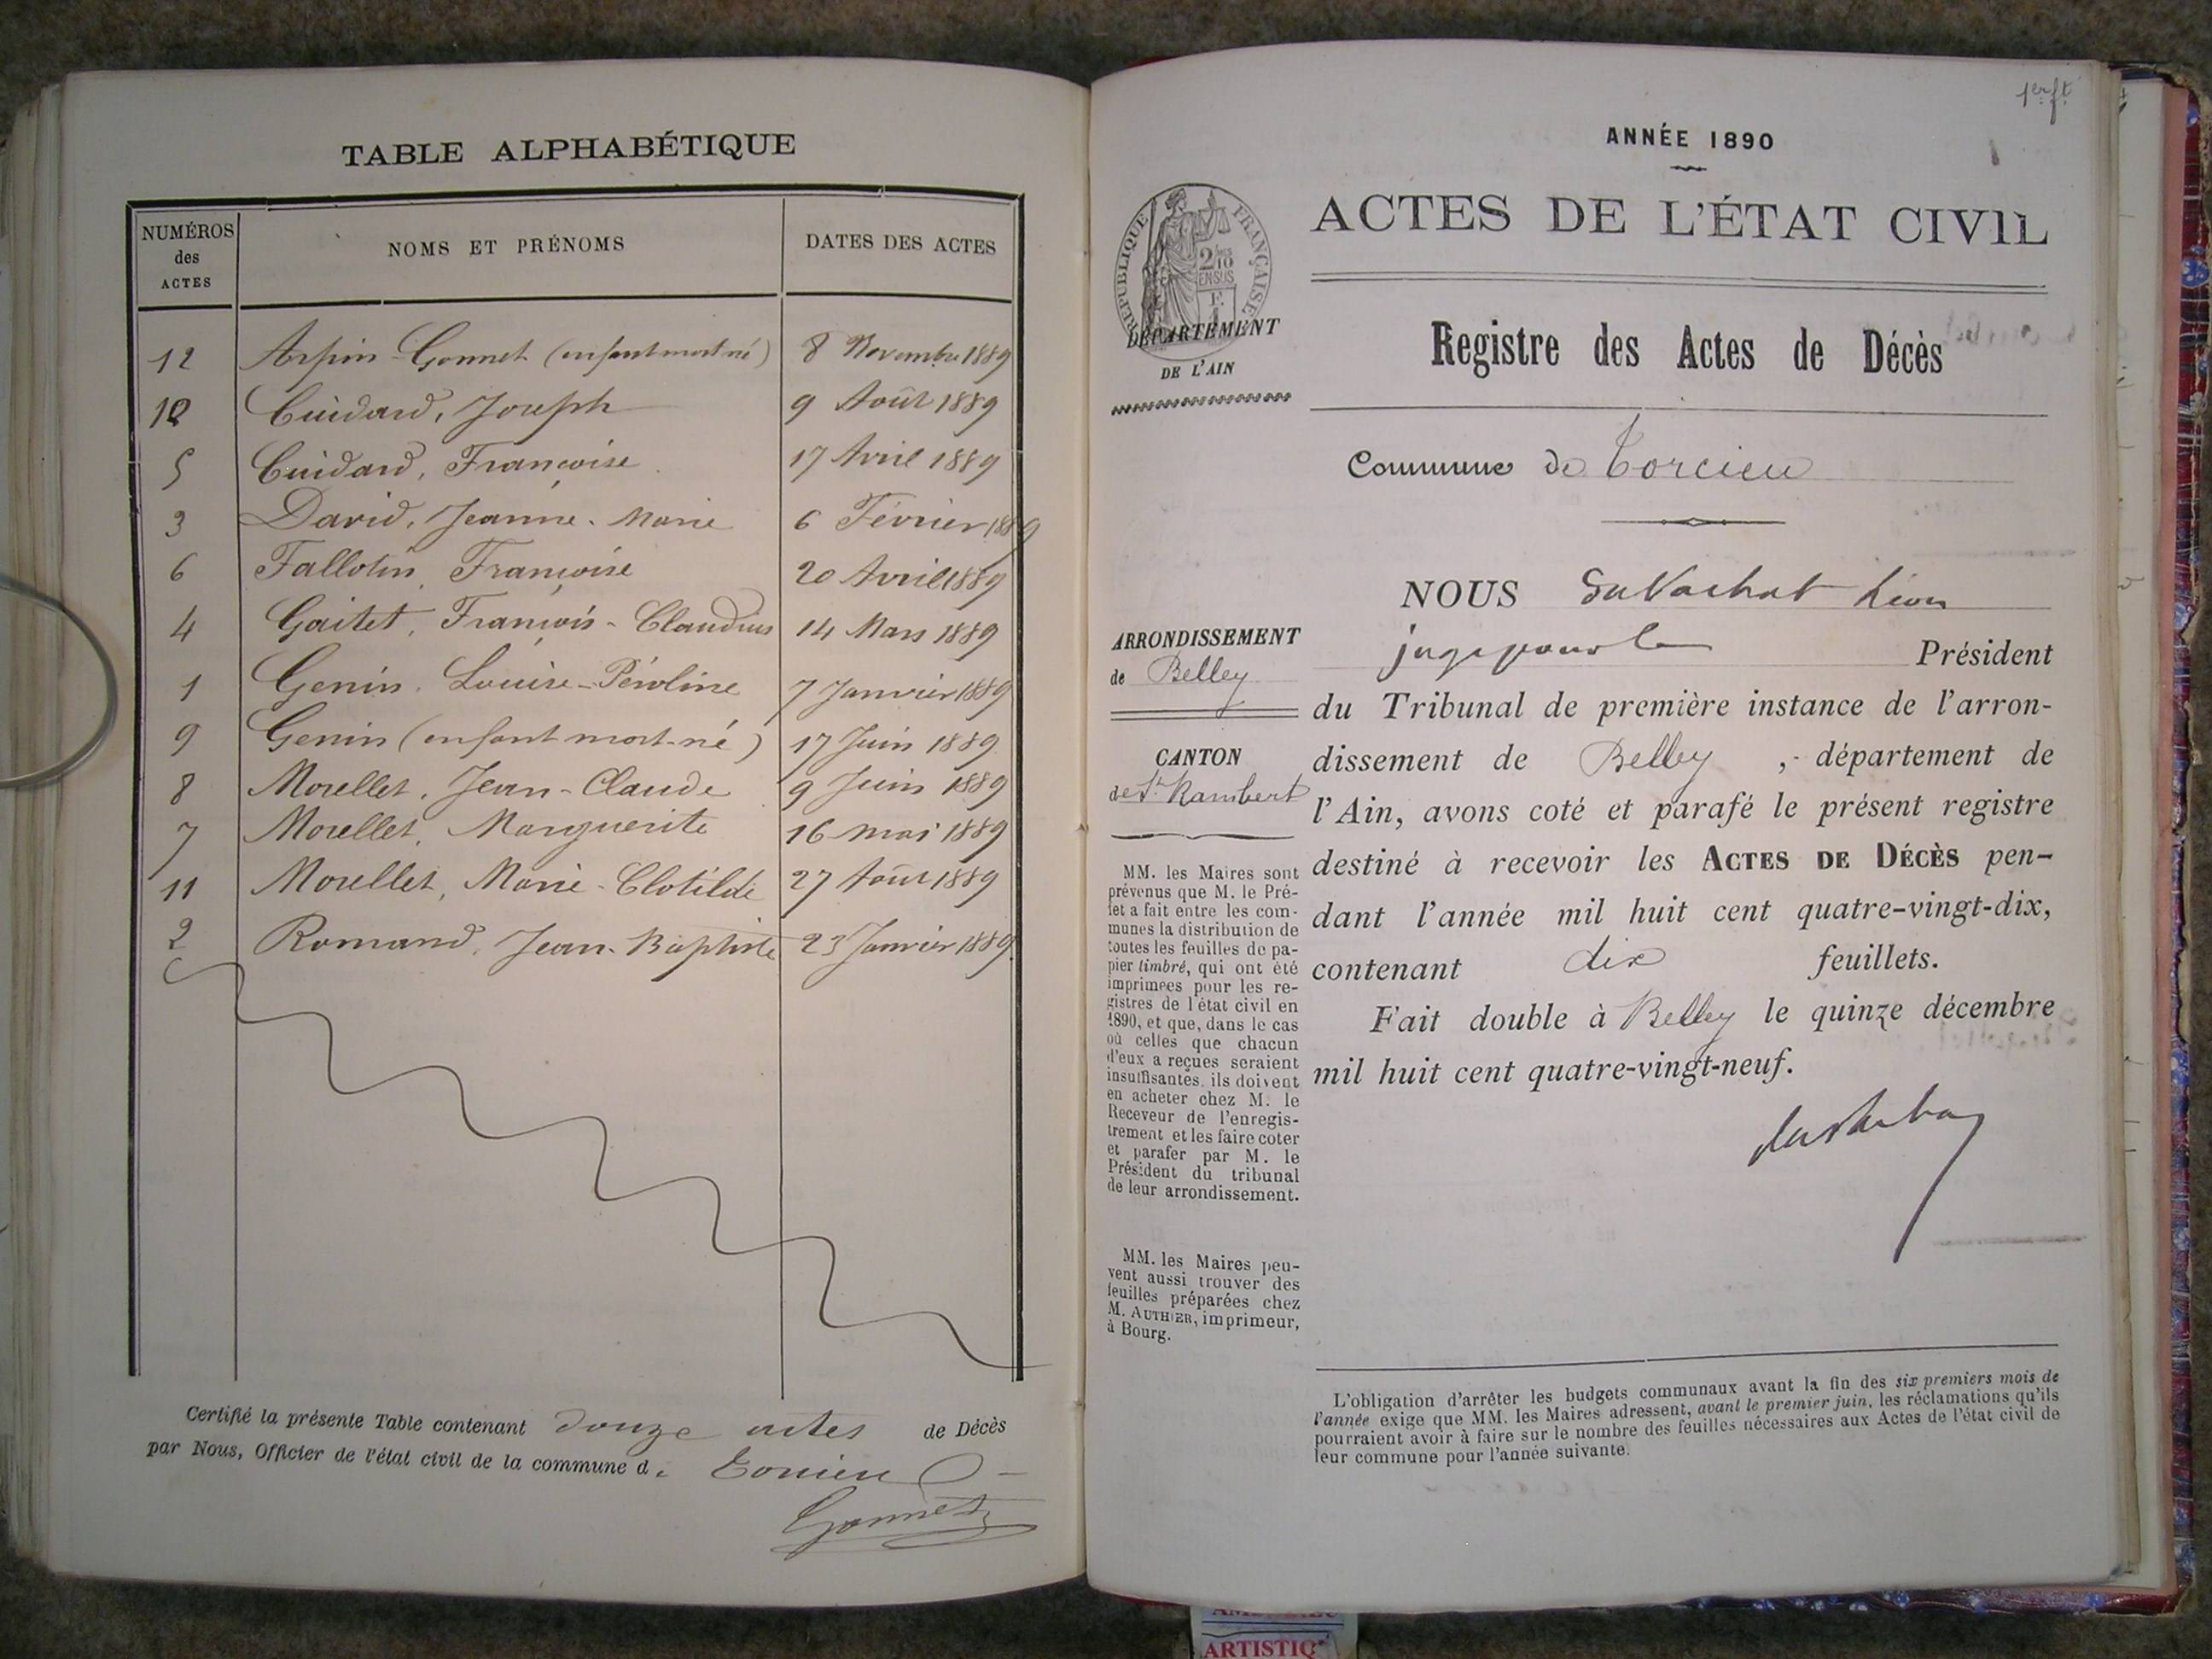 TABLE ALPHABÉTIQUE
NUMÉROS des ACTES NOMS ET PRÉNOMS DATES DES ACTES
12 Arpin-Gonnet (enfant mort né) 8 Novembre 1889
10 Cuidard, Joseph 9 Août 1889
5 Cuidard, Françoise 17 Avril 1889
3 David, Jeanne-Marie 6 Février 1889
6 Fallotin, Françoise 20 Avril 1889
4 Gaitet, François-Claudius 14 Mars 1889
1 Genin, Louise-Péroline 7 Janvier 1889
9 Genin (enfant mort-né) 17 Juin 1889
8 Morellet, Jean-Claude 9 Juin 1889
7 Morellet, Marguerite 16 mai 1889
11 Morellet, Marie-Clotilde 27 Août 1889
2 Romand, Jean-Baptiste 23 Janvier 1889
Certifié la présente Table contenant douze actes de Décès
par Nous, Officier de l'état civil de la commune d. Torcieu
Gonnet
1er ft
ANNÉE 1890
ACTES DE L'ÉTAT CIVIL
RÉPUBLIQUE FRANÇAISE
2/10
EN SUS
DÉPARTEMENT
DE L'AIN
Registre des Actes de Décès
Commune de Torcieu
ARRONDISSEMENT
de Belley
CANTON
de St Rambert
MM. les Maires sont
prévenus que M. le Pré-
fet a fait entre les com-
munes la distribution de
toutes les feuilles de pa-
pier timbré, qui ont été
imprimées pour les re-
gistres de l'état civil en
1890, et que, dans le cas
où celles que chacun
d'eux a reçues seraient
insuffisantes, ils doivent
en acheter chez M. le
Receveur de l'enregis-
trement et les faire coter
et parafer par M. le
Président du tribunal
de leur arrondissement.
MM. les Maires peu-
vent aussi trouver des
feuilles préparées chez
M. AUTHIER, imprimeur,
à Bourg.
NOUS DuVachat Léon
juge pour le Président
du Tribunal de première instance de l'arron-
dissement de Belley, département de
l'Ain, avons coté et parafé le présent registre
destiné à recevoir les ACTES DE DÉCÈS pen-
dant l'année mil huit cent quatre-vingt-dix,
contenant dix feuillets.
Fait double à Belley le quinze décembre
mil huit cent quatre-vingt-neuf.
L'obligation d'arrêter les budgets communaux avant la fin des six premiers mois de
l'année exige que MM. les Maires adressent, avant le premier juin, les réclamations qu'ils
pourraient avoir à faire sur le nombre des feuilles nécessaires aux Actes de l'état civil de
leur commune pour l'année suivante.
ARTISTIQ